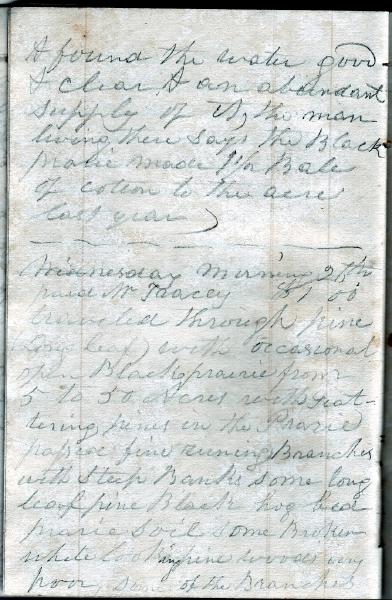 & found the water good
& clear & an abundant
supply of it, the man
living there says the Black
Prarie made 1/2 Bale
of cotton to the acre
last year
Wednesday morning 27th
paid Mr Tracey $1 00
traveled through pine
(long leaf) with occasional
open Black prairie from
5 to 50 Acres with scat-
tering pines in the Prarie
passed fine runing Branches
with Steep Banks some long
leaf pine Black hog bed
prarie Soil some Broken
white looking pine woods very
poor, some of the Branches